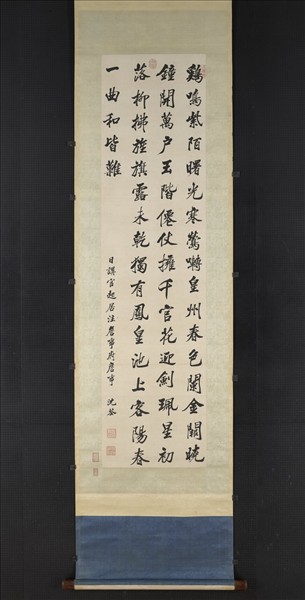 鷄鳴紫陌曙光寒鶯囀皇州春色闌金闕曉
鐘開萬户玉階僊仗擁千官花迎劍珮星初
落柳拂旌旗露未乾獨有鳳皇池上客陽春
一曲和皆難
日講官起居注詹事府詹事沈荃